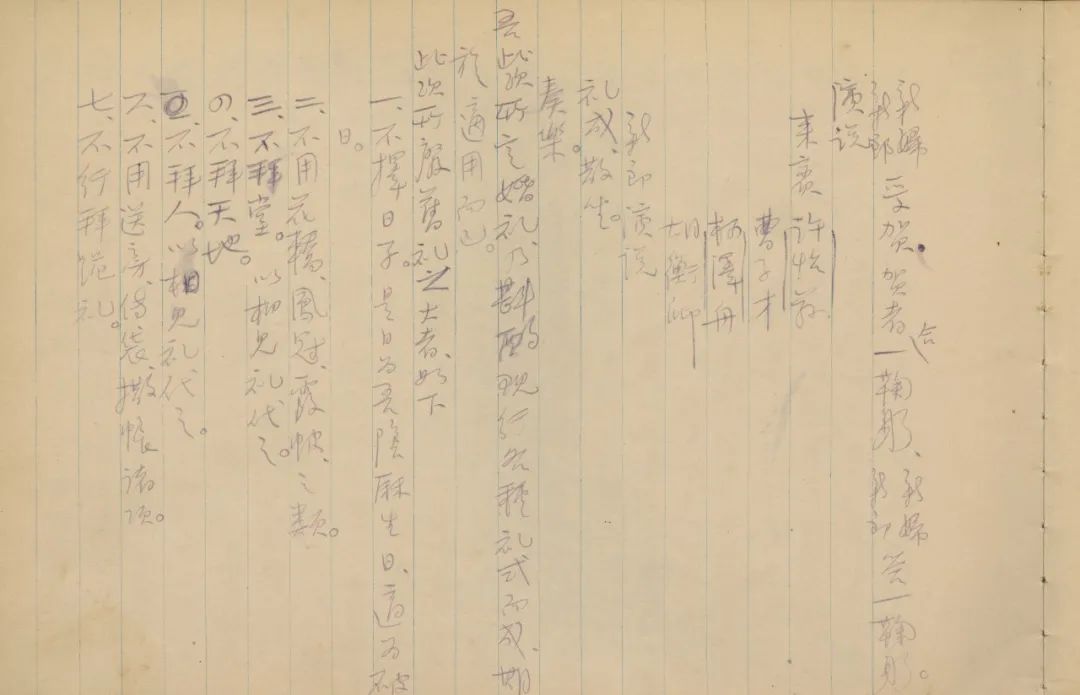 新婦新郎受賀。賀者合一鞠躬、新婦新郎答一鞠躬。
演説
來賓 許怡蓀
曹子才
柯澤舟
胡衡卿
新郎演説
礼成、散坐。
奏樂。
吾此次所定婚礼、乃斟酌現行各種礼式而成、期
於適用而已。
此次所廢舊礼之大者、如下
一、不擇日子。是日为吾陰厤生日、適为破
日。
二、不用花轎、鳳冠、霞帔、之類。
三、不拜堂。以相見礼代之。
四、不拜天地。
五、不拜人。以相見礼代之。
六、不用送房、傳袋、撒帳諸項。
七、不行拜跪礼。